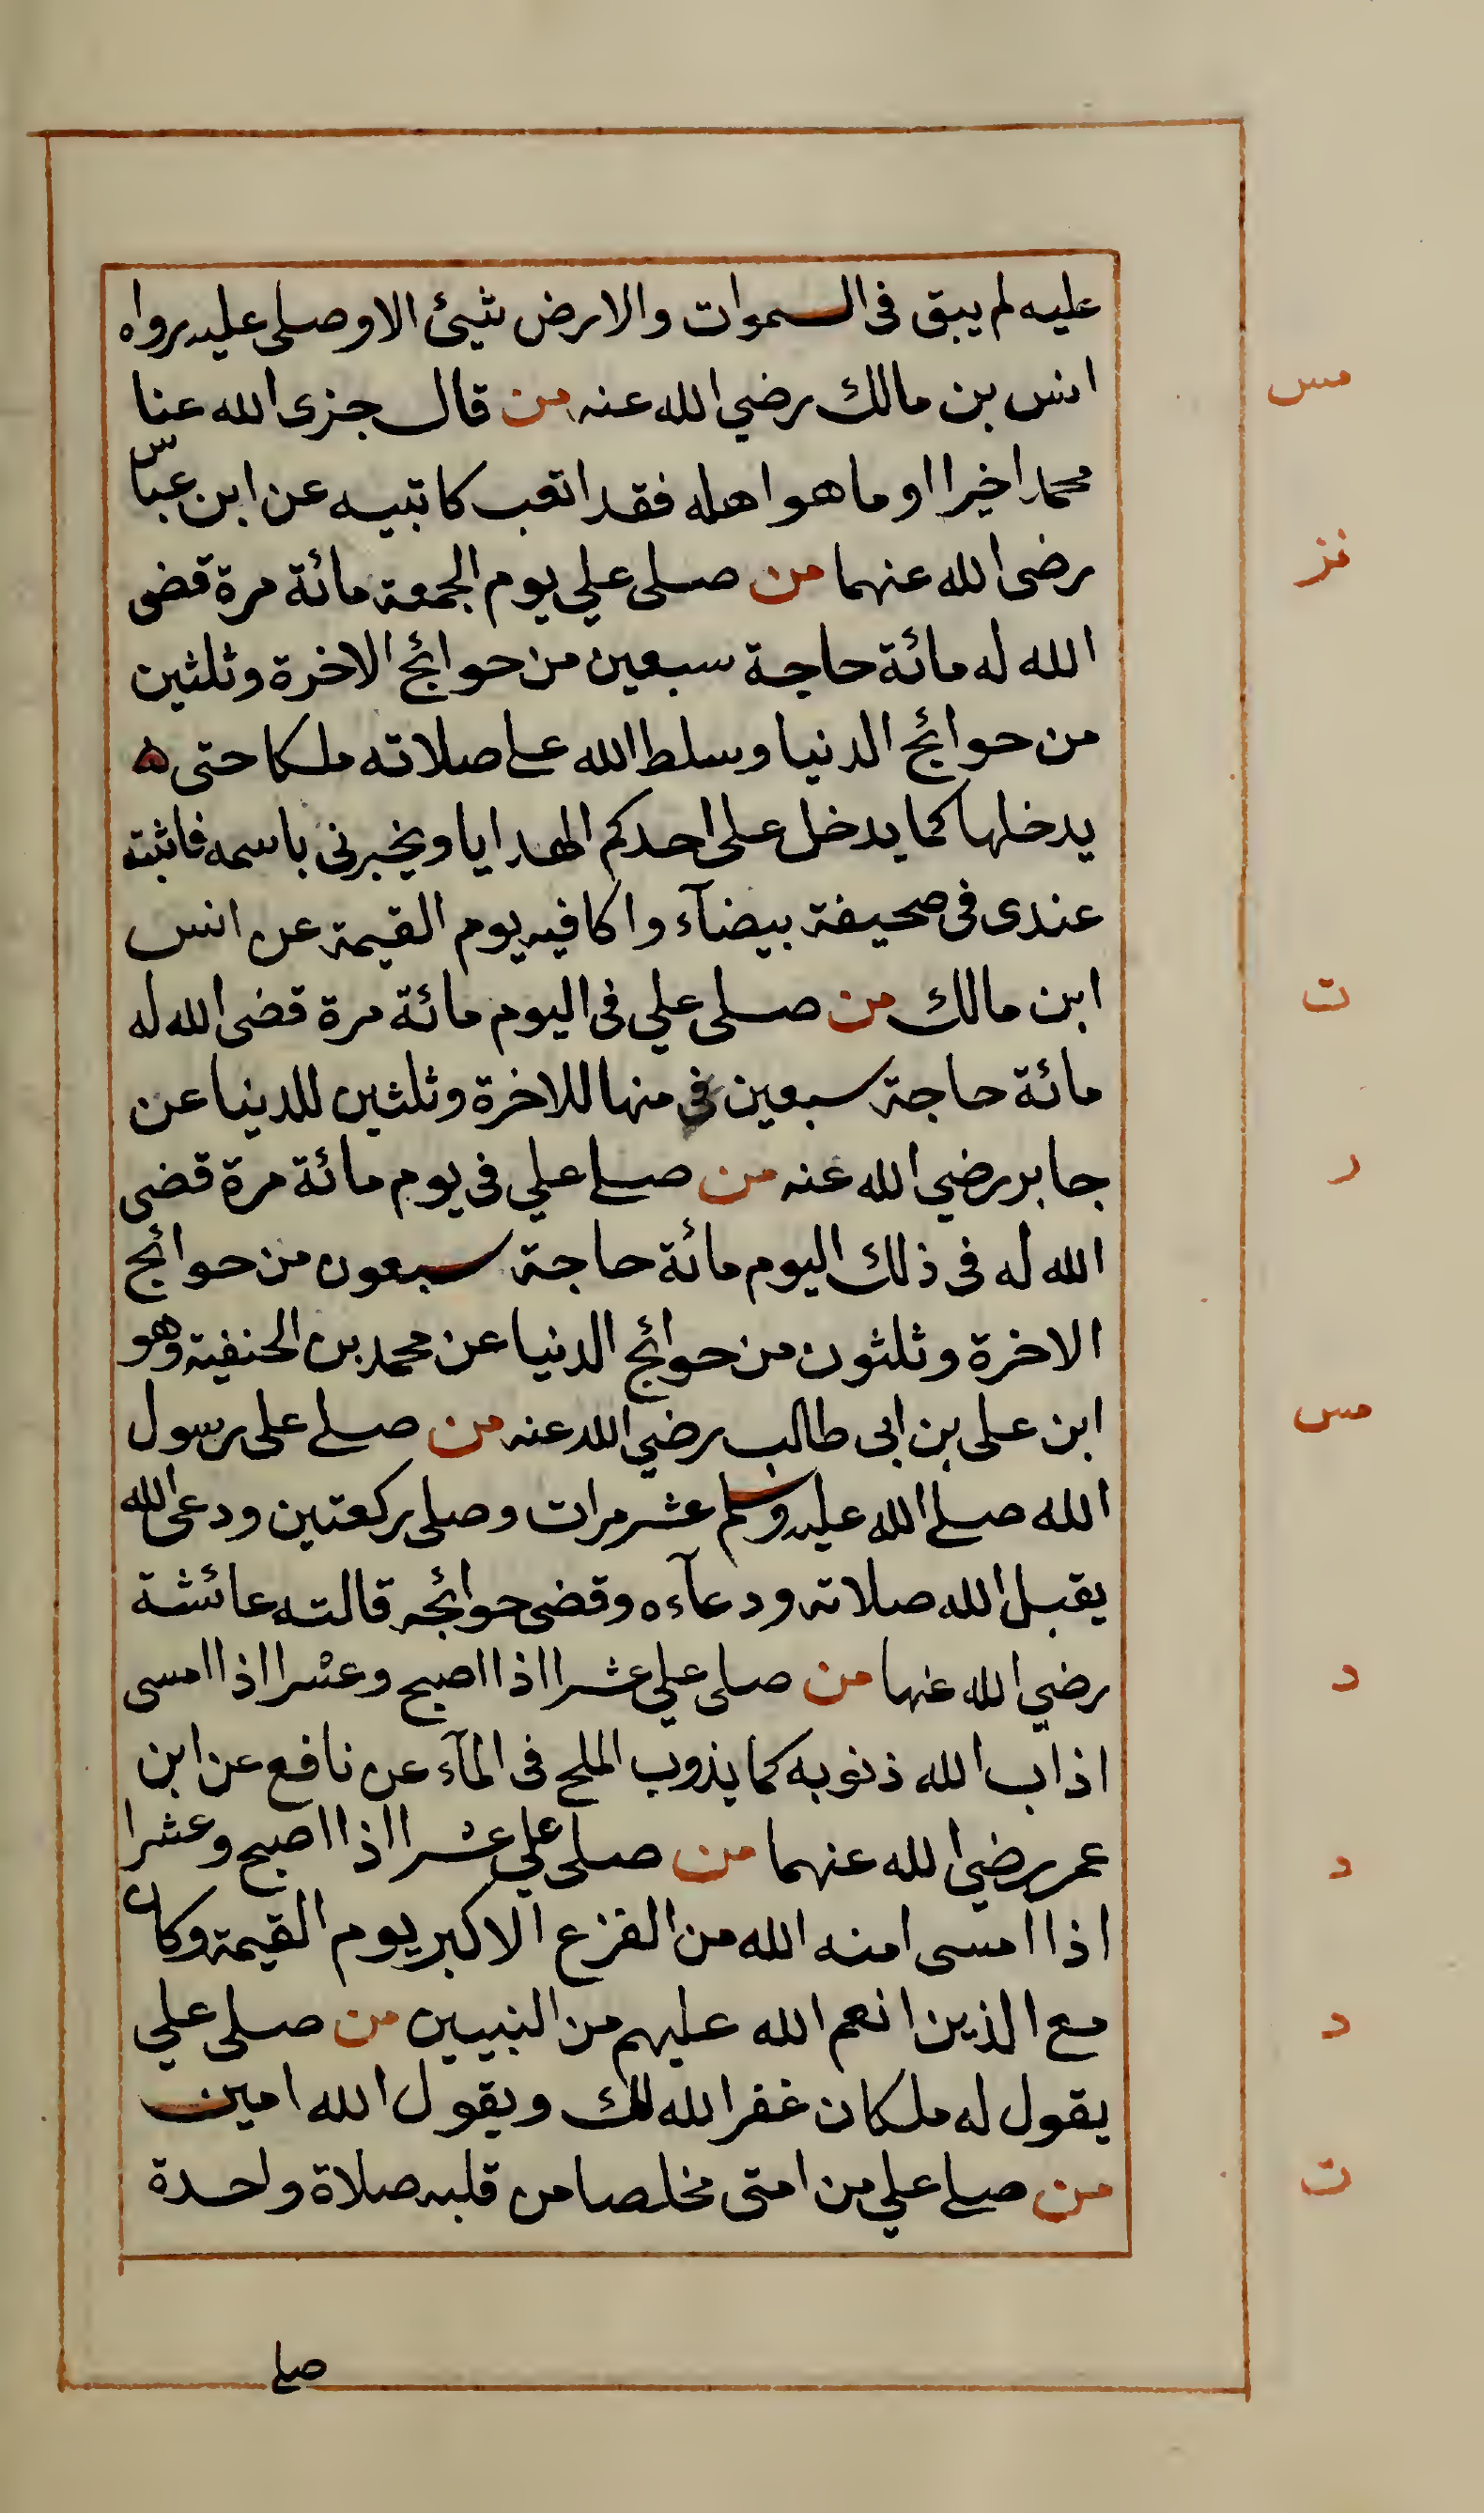 عليه لم يبق فى السموات والارض شيئ الا وصلى عليه رواه
انس بن مالك رضي الله عنه من قال جزى الله عنا
مس
محمدا خيرا او ما هو اهله فقد اتعب كاتبيه عن ابن عباس
رضى الله عنهما من صلى علي يوم الجمعة مائة مرة قضى
نز
الله له مائة حاجة سبعين من حوائج الاخرة وثلثين
من حوائج الدنيا وسلط الله على صلاته ملكا حتى ه
يدخلها كما يدخل على احدكم الهدايا ويخبرنى باسمه فاثبته
عندى فى صحيفة بيضآء واكافيه يوم القيمة عن انس
ابن مالك من صلى علي فى اليوم مائة مرة قضى الله له
ت
مائة حاجة سبعين فى منها للاخرة وثلثين للدنيا عن
جابر رضي الله عنه من صلى علي فى يوم مائة مرة قضى
ر
الله له فى ذلك اليوم مائة حاجة سبعون من حوائج
الاخرة وثلثون من حوائج الدنيا عن محمد بن الحنفية وهو
ابن على بن ابى طالب رضي الله عنه من صلى على رسول
مس
الله صلى الله عليه وسلم عشر مرات وصلى ركعتين ودعى الله
يقبل الله صلاته ودعآءه وقضى حوائجه قالته عائشة
رضي الله عنها من صلى علي عشرا اذا اصبح وعشرا اذا امسى
د
اذاب الله ذنوبه كما يذوب الملح فى المآء عن نافع عن ابن
عمر رضي الله عنهما من صلى علي عشرا اذا اصبح وعشرا
د
اذا امسى امنه الله من الفزع الاكبر يوم القيمة وكان
مع الذين انعم الله عليهم من النبيين من صلى علي
د
يقول له ملكان غفر الله لك ويقول الله امين
من صلى علي من امتى مخلصا من قلبه صلاة واحدة
ت
صلى